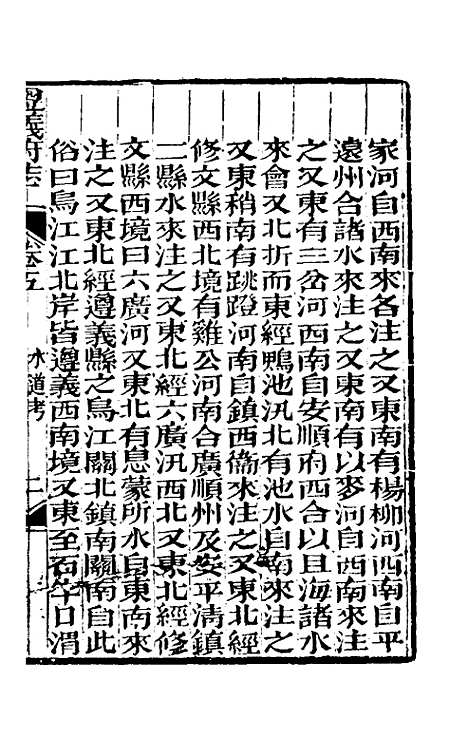 家河自西南來各注之又東南有楊柳河西南自平
遠州合諸水來注之又東南有以麥河自西南來注
之又東有三岔河西南自安順府西合以且海諸水
來會又北折而東經鴨池汛北有池水自南來注之
又東稍南有跳蹬河南自鎮西衞來注之又東北經
修文縣西北境有雞公河南合廣順州及安平清鎮
二縣水來注之又東北經六廣汛西北又東北經修
文縣西境曰六廣河又東北有息蒙所水自東南來
注之又東北經遵義縣之烏江關北鎮南關南自此
俗曰烏江江北岸皆遵義西南境又東至石牛口渭
遵義府志
卷五
水道考
二